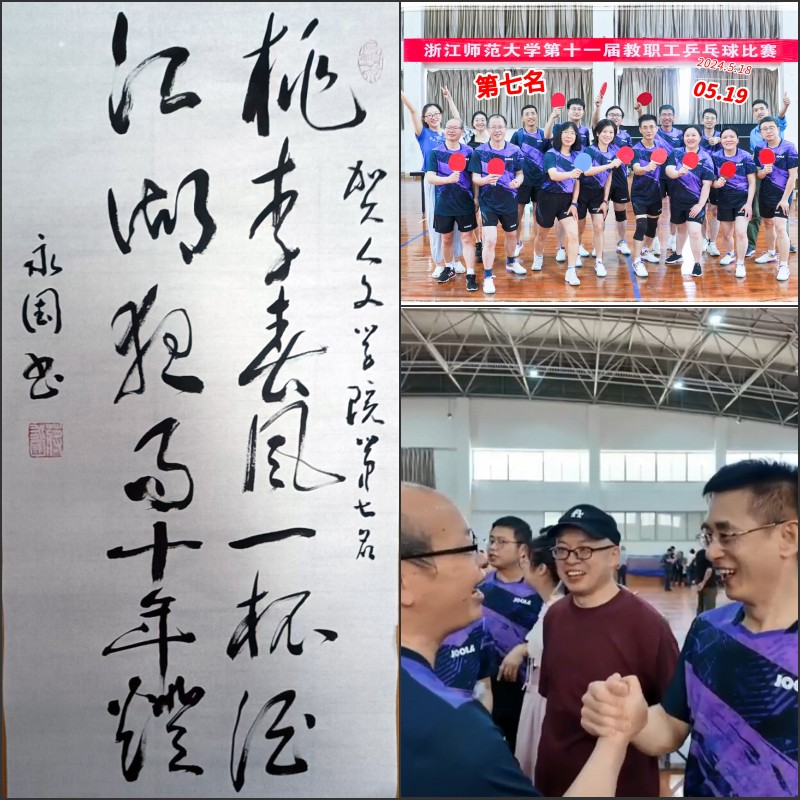 贺人文学院第七名
桃李春風一杯酒
江湖夜雨十年燈
永 书
浙江师范大学第十一届教职工乒乓球比赛
2024.5.18
第七名
05.19
JOOLA
JOOLA
JOOLA